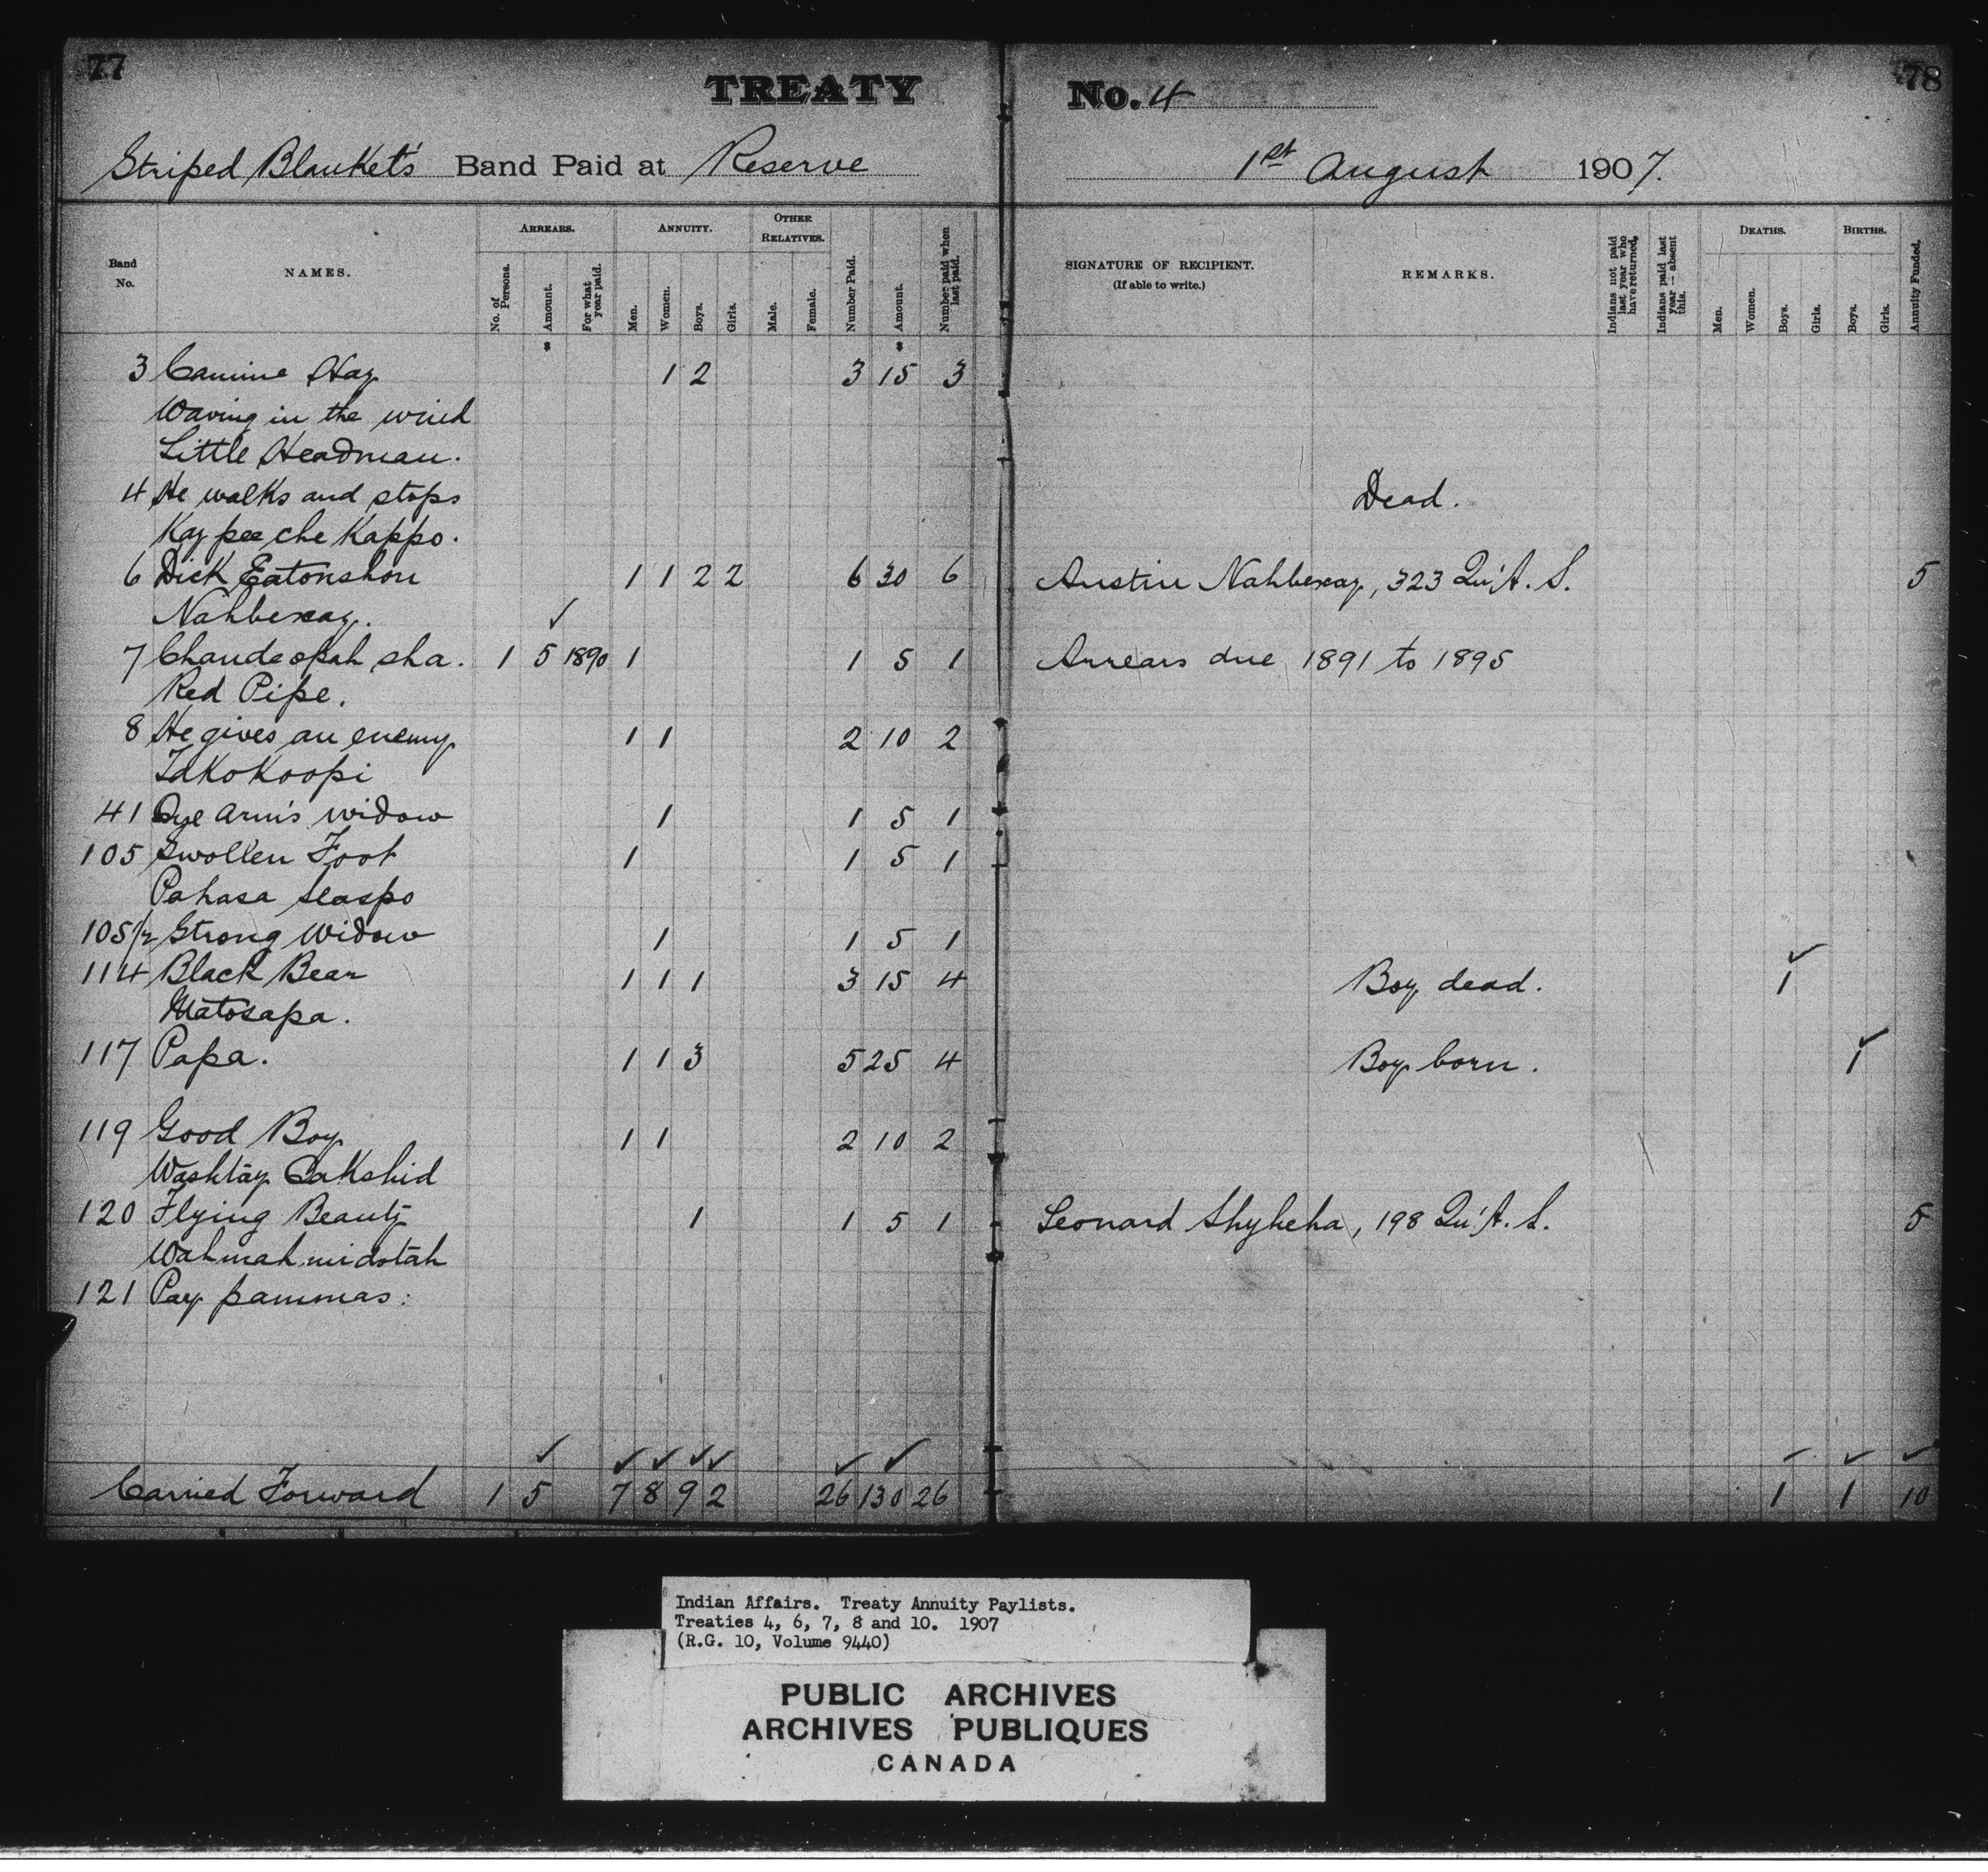 77
TREATY No. 4
78
Striped Blanket's Band Paid at Reserve 1st August 1907.
Band No.
NAMES.
ARREARS.
No. of Persons.
Amount.
For what year paid.
ANNUITY.
Men.
Women.
Boys.
Girls.
OTHER RELATIVES.
Male.
Female.
Number Paid.
Amount.
Number paid when last paid.
SIGNATURE OF RECIPIENT.
(If able to write.)
REMARKS.
Indians not paid last year who have returned.
Indians paid last year — absent this.
DEATHS.
Men.
Women.
Boys.
Girls.
BIRTHS.
Boys.
Girls.
Annuity Funded.
3 Canine Hay 1 2 3 15 3
Waving in the wind
Little Headman.
4 He walks and stops Dead.
Kay pee che Kappo.
6 Dick Eatonshon 1 1 2 2 6 30 6 Austin Nahbexay, 323 Qu'A. S. 5
Nahbexay. ✓
7 Chandeopah sha. 1 5 1890 1 1 5 1 Arrears due 1891 to 1895
Red Pipe.
8 He gives an enemy 1 1 2 10 2
Takokoopi
41 Dye Arm's widow 1 1 5 1
105 Swollen Foot 1 1 5 1
Pahasa seaspo
105½ Strong Widow 1 1 5 1
114 Black Bear 1 1 1 3 15 4 Boy dead. 1 ✓
Matosapa.
117 Papa. 1 1 3 5 25 4 Boy born. 1 ✓
119 Good Boy 1 1 2 10 2
Washtay Cakshid
120 Flying Beauty 1 1 5 1 Leonard Shyheha, 198 Qu'A. S. 5
Wahmah midotah
121 Pay pammas:
✓ ✓ ✓ ✓ ✓ ✓ ✓ ✓ ✓ ✓
Carried Forward 1 5 7 8 9 2 26 130 26 1 1 10
Indian Affairs. Treaty Annuity Paylists.
Treaties 4, 6, 7, 8 and 10. 1907
(R.G. 10, Volume 9440)
PUBLIC ARCHIVES
ARCHIVES PUBLIQUES
CANADA